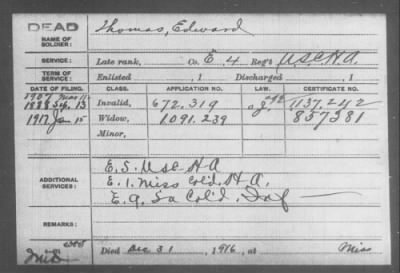 DEAD
NAME OF SOLDIER: Thomas, Edward
SERVICE: Late rank, Co. E 4 Reg't U.S.C.H.A.
TERM OF SERVICE: Enlisted , 1 Discharged , 1
DATE OF FILING. CLASS. APPLICATION NO. LAW. CERTIFICATE NO.
1907 Mar
1888 Sep. 13 Invalid, 672.319 1137.242
1917 Jan 15 Widow, 1.091.239 857381
Minor,
ADDITIONAL SERVICES:
E. 5. U.S.C.H.A
E. 1. Miss Col'd. H.A.
E. 9. La Col'd. Inf
REMARKS:
Died Dec 31 , 1916, at Miss